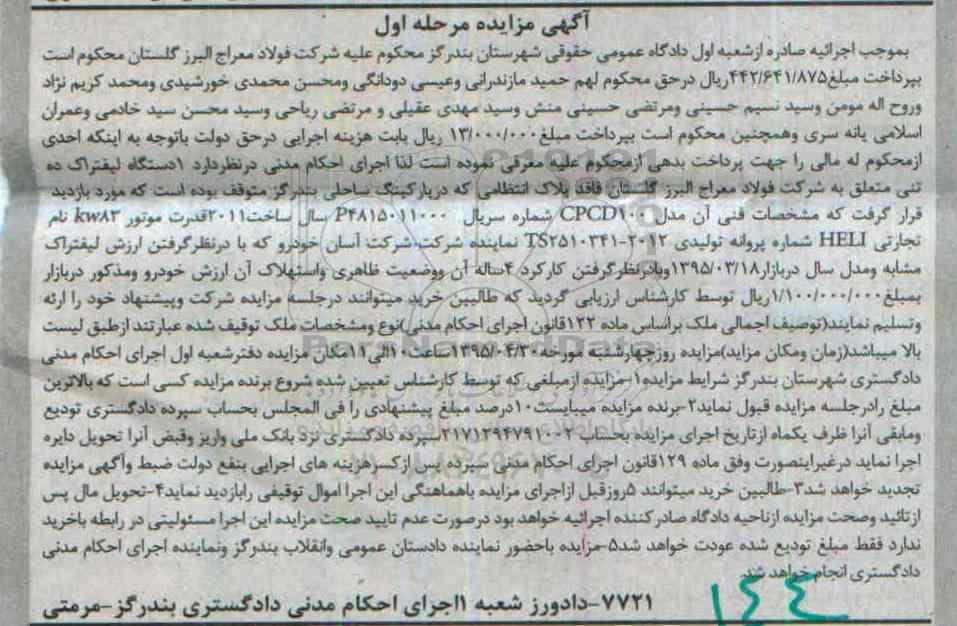 آگهی مزایده مرحله اول
بموجب اجرائیه صادره ازشعبه اول دادگاه عمومی حقوقی شهرستان بندرگز محکوم علیه شرکت فولاد معراج البرز گلستان محکوم است
بپرداخت مبلغ۴۴۲/۶۴۱/۸۷۵ریال درحق محکوم لهم حمید مازندرانی وعیسی دودانگی ومحسن محمدی خورشیدی ومحمد کریم نژاد
وروح اله مومن وسید نسیم حسینی ومرتضی حسینی منش وسید مهدی عقیلی و مرتضی ریاحی وسید محسن سید خادمی وعمران
اسلامی یانه سری وهمچنین محکوم است بپرداخت مبلغ۱۳/۰۰۰/۰۰۰ ریال بابت هزینه اجرایی درحق دولت باتوجه به اینکه احدی
ازمحکوم له مالی را جهت پرداخت بدهی ازمحکوم علیه معرفی نموده است لذا اجرای احکام مدنی درنظردارد ۱دستگاه لیفتراک ده
تنی متعلق به شرکت فولاد معراج البرز گلستان فاقد پلاک انتظامی که درپارکینگ ساحلی بندرگز متوقف بوده است که مورد بازدید
قرار گرفت که مشخصات فنی آن مدل CPCD۱۰۰ شماره سریال P۴۸۱۵۰۱۱۰۰۰ سال ساخت۲۰۱۱قدرت موتور kw۸۳ نام
تجارتی HELI شماره پروانه تولیدی TS۲۵۱۰۳۴۱-۲۰۱۲ نماینده شرکت،شرکت آسان خودرو که با درنظرگرفتن ارزش لیفتراک
مشابه ومدل سال دربازار۱۳۹۵/۰۳/۱۸وبادرنظرگرفتن کارکرد ۴ساله آن ووضعیت ظاهری واستهلاک آن ارزش خودرو ومذکور دربازار
بمبلغ۱/۱۰۰/۰۰۰/۰۰۰ریال توسط کارشناس ارزیابی گردید که طالبین خرید میتوانند درجلسه مزایده شرکت وپیشنهاد خود را ارئه
وتسلیم نمایند(توصیف اجمالی ملک براساس ماده ۱۲۲قانون اجرای احکام مدنی)نوع ومشخصات ملک توقیف شده عبارتند ازطبق لیست
بالا میباشد(زمان ومکان مزاید)مزایده روزچهارشنبه مورخه۱۳۹۵/۰۴/۳۰ساعت۱۰الی۱۱مکان مزایده دفترشعبه اول اجرای احکام مدنی
دادگستری شهرستان بندرگز شرایط مزایده۱-مزایده ازمبلغی که توسط کارشناس تعیین شده شروع برنده مزایده کسی است که بالاترین
مبلغ رادرجلسه مزایده قبول نماید۲-برنده مزایده میبایست۱۰درصد مبلغ پیشنهادی را فی المجلس بحساب سپرده دادگستری تودیع
ومابقی آنرا ظرف یکماه ازتاریخ اجرای مزایده بحساب ۲۱۷۱۲۹۴۷۹۱۰۰۲سپرده دادگستری نزد بانک ملی واریز وقبض آنرا تحویل دایره
اجرا نماید درغیراینصورت وفق ماده ۱۲۹قانون اجرای احکام مدنی سپرده پس ازکسرهزینه های اجرایی بنفع دولت ضبط وآگهی مزایده
تجدید خواهد شد۳-طالبین خرید میتوانند ۵روزقبل ازاجرای مزایده باهماهنگی این اجرا اموال توقیفی رابازدید نماید۴-تحویل مال پس
ازتائید وصحت مزایده ازناحیه دادگاه صادرکننده اجرائیه خواهد بود درصورت عدم تایید صحت مزایده این اجرا مسئولیتی در رابطه باخرید
ندارد فقط مبلغ تودیع شده عودت خواهد شد۵-مزایده باحضور نماینده دادستان عمومی وانقلاب بندرگز ونماینده اجرای احکام مدنی
دادگستری انجام خواهد شد.
۷۷۲۱-دادورز شعبه ۱اجرای احکام مدنی دادگستری بندرگز-مرمتی
۱٤٤